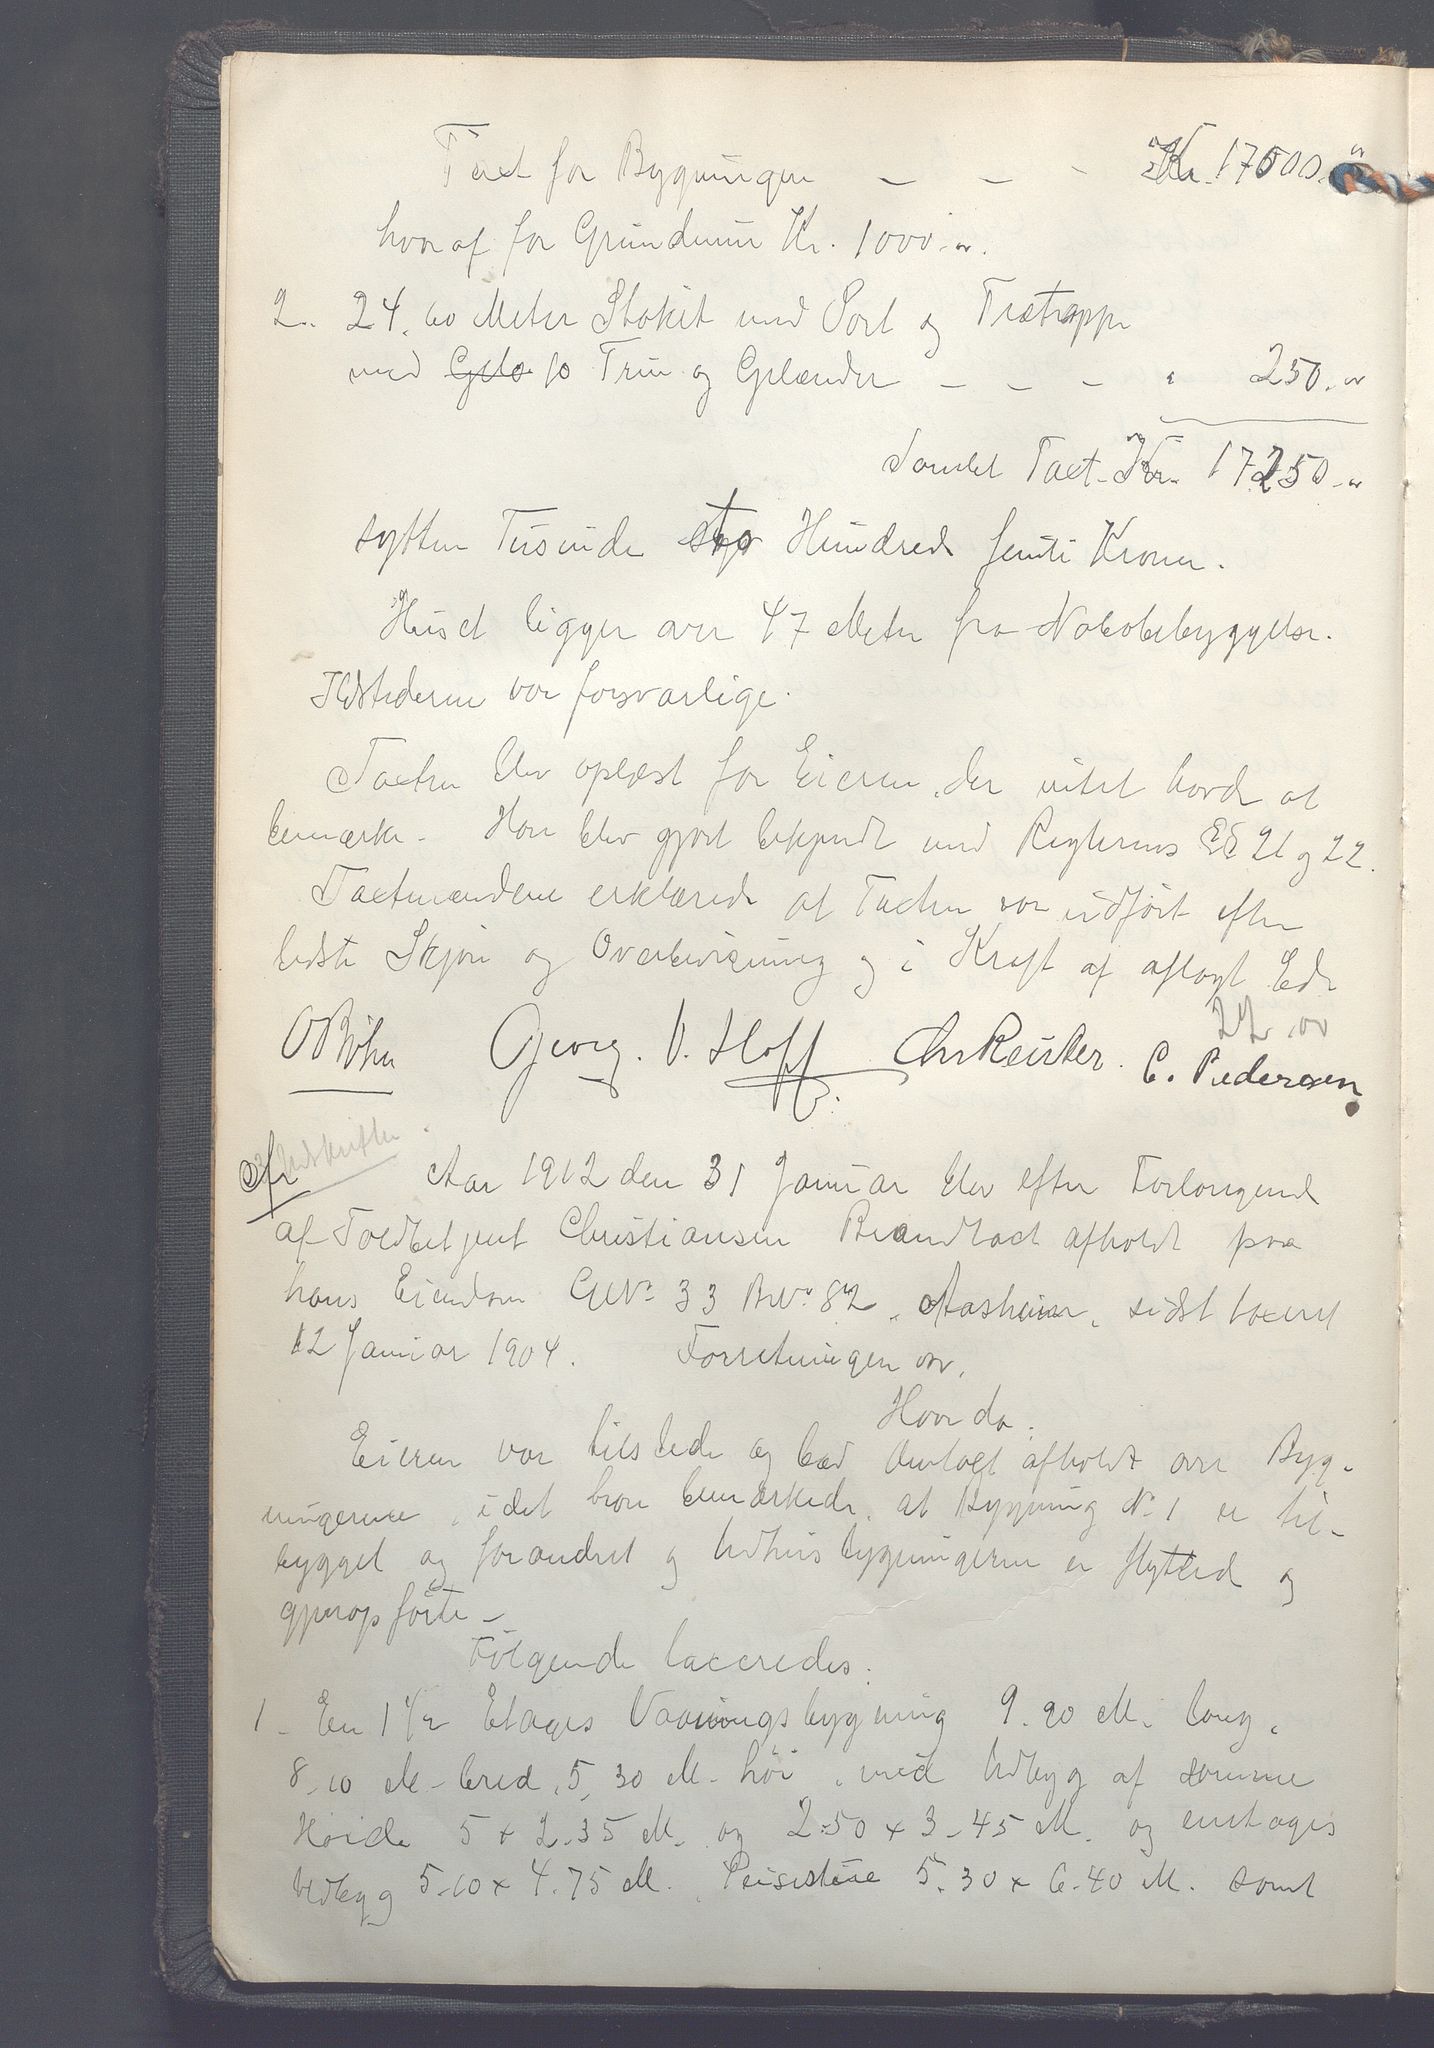 Taxt for Bygningen — — - Kr. 17000. "
hvoraf for Grundmur Kr. 1000. "
2. 24.00 Meter Stakit med Port og Trætrappe
med 10 Trin og Gelænder — — — " 250. "
Samlet Taxt Kr. 17250. "
sytten Tusinde to Hundrede femti Kroner.
Huset ligger over 47 Meter fra Nabobebyggelse.
Ildstederne var forsvarlige.
Taxten blev oplæst for Eieren, der intet havde at
bemærke. Han blev gjort bekjendt med Reglernes §§ 21 og 22.
Taxtmændene erklærede at Taxten var udført efter
bedste Skjøn og Overbevisning og i Kraft af aflagt Ed.
22.00
O Bøhn Georg. V. Hoff Chr Reuter. C. Pedersen
Afr Udskriften
Aar 1912 den 31 Januar blev efter Forlangende
af Toldbetjent Christiansen Brandtaxt afholdt paa
hans Eiendom GNº 33 BNº 82, Aasheim, sidst taxeret
12 Januar 1904. Forretningen var.
Hvorda.
Eieren var tilstede og bad Omtaxt afholdt over Byg-
ningerne, idet han bemærkede, at Bygning Nº 1 er til-
bygget og forandret og Udhusbygningerne er flytted og
gjenopførte —
Følgende taxeredes:
1 - En 1 1/2 Etages Vaaningsbygning 9.90 M. lang,
8.10 M. bred, 5,30 M. høi, med Udbyg af samme
Høide 5 x 2.35 M. og 2.50 x 3.45 M. og enetages
Udbyg 5.10 x 4.75 M. Peisestue 5.30 x 6.40 M. samt